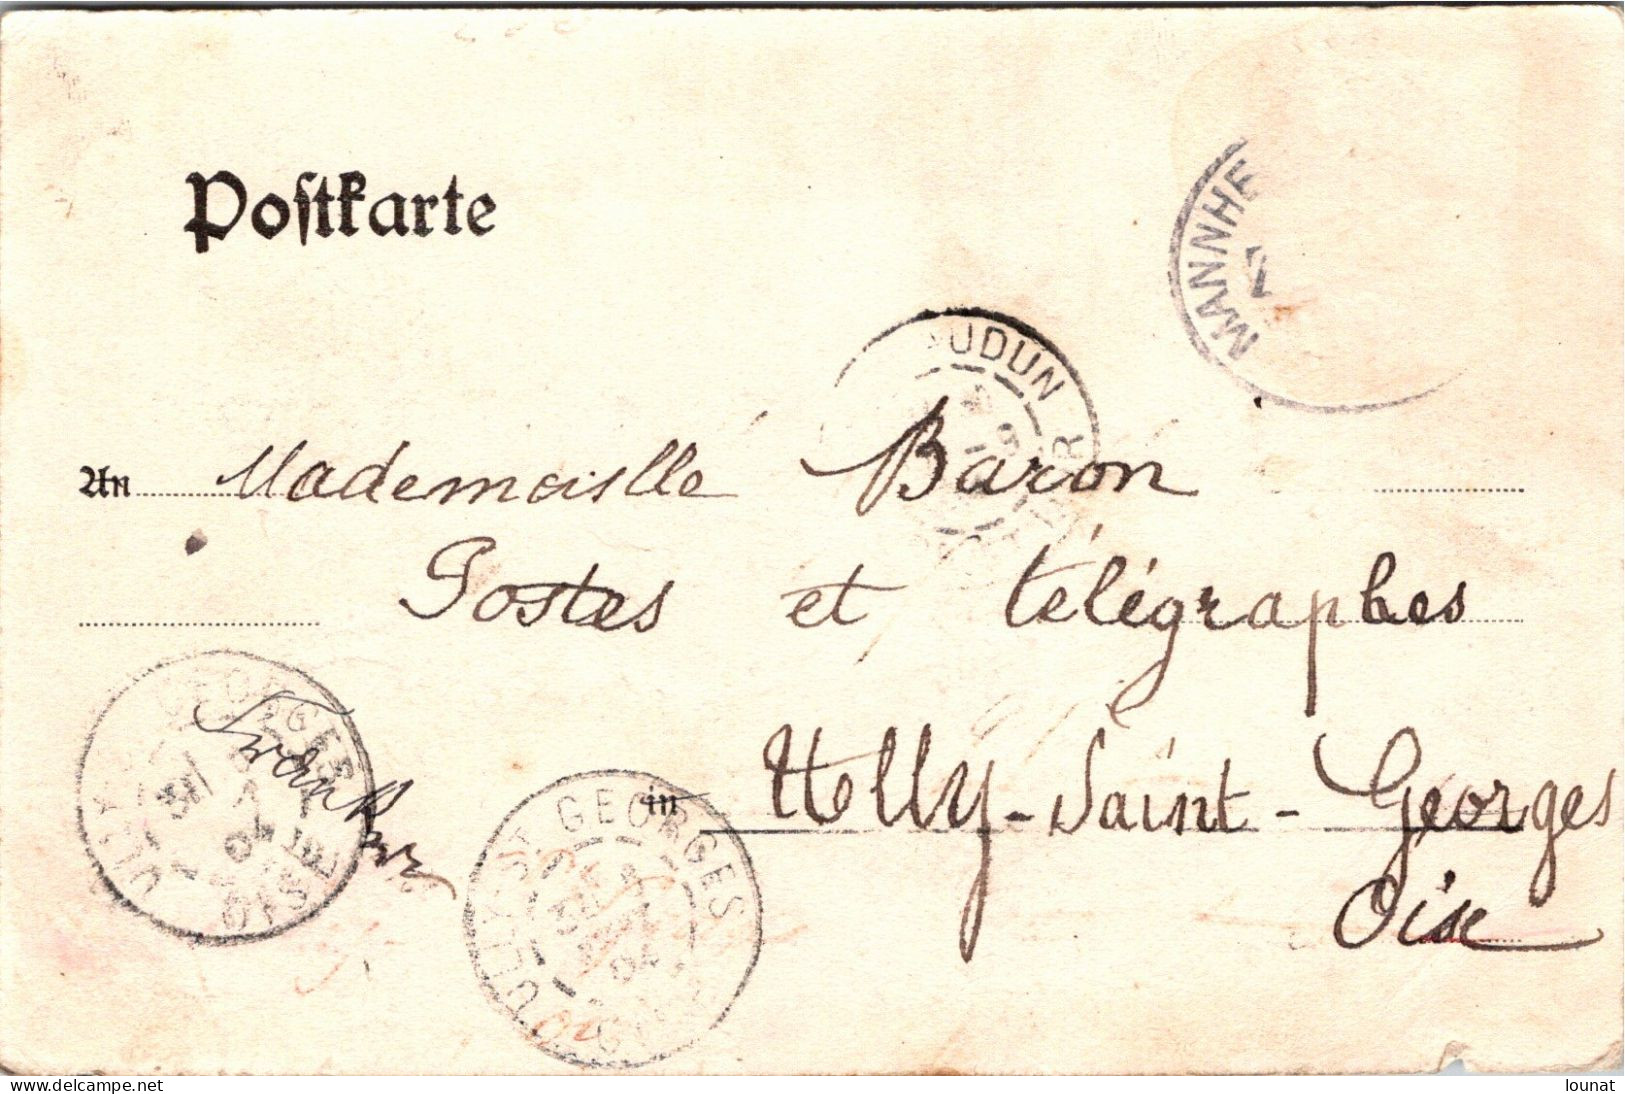 Postkarte
MANNHE
UDUN
An Mademoislle Baron
Postes et télégraphes
in Ully-Saint-Georges
Oise
ULLY-ST GEORGES
OISE
ULLY-ST GEORGES
OISE
delcampe.net
lounat